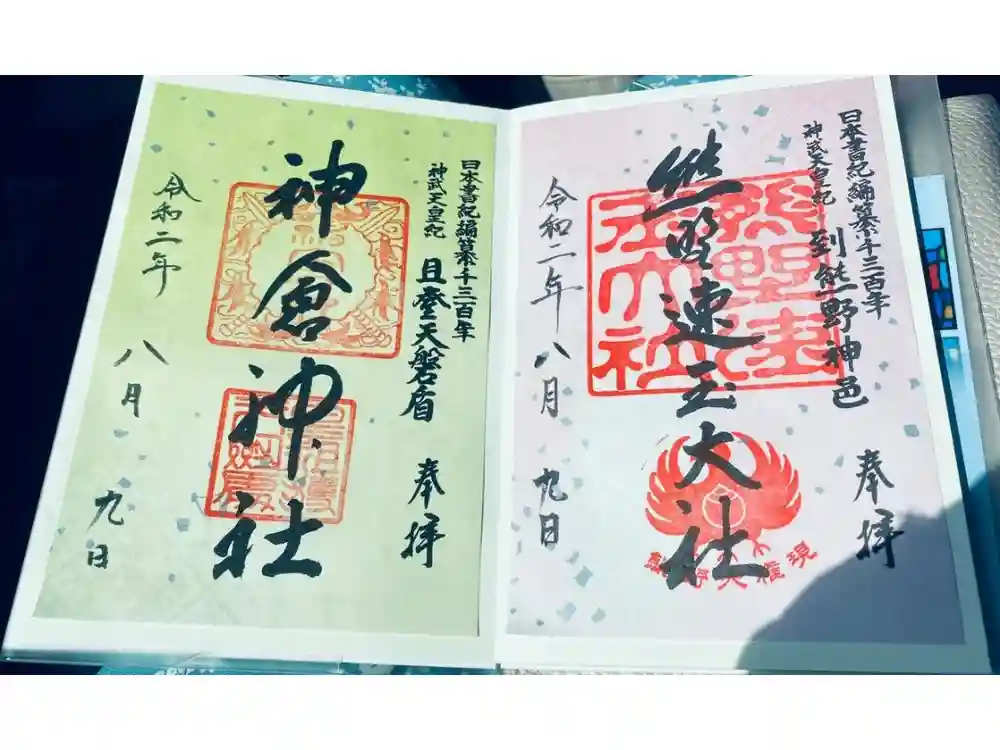 日本書紀編纂千三百年
神武天皇紀 到熊野神邑
奉拝
熊野速玉大社
熊野速玉大社
令和二年 八月 九日
日本書紀編纂千三百年
神武天皇紀 且登天磐盾
奉拝
神倉神社
令和二年 八月 九日